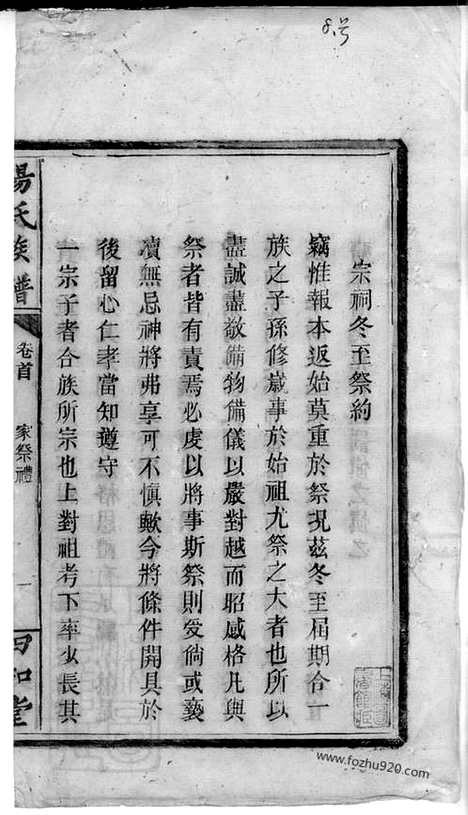 宗祠冬至祭約
竊惟報本返始莫重於祭況茲冬至屆期合一
族之子孫修歲事於始祖尤祭之大者也所以
盡誠盡敬備物備儀以嚴對越而昭感格凡與
祭者皆有責焉必虔以將事斯祭則受倘或褻
瀆無忌神將弗享可不慎歟今將條件開具於
後留心仁孝當知遵守
一宗子者合族所宗也上對祖考下率少長其
氏族譜
卷首
家祭禮
一
和堂
www.fozhu920.com